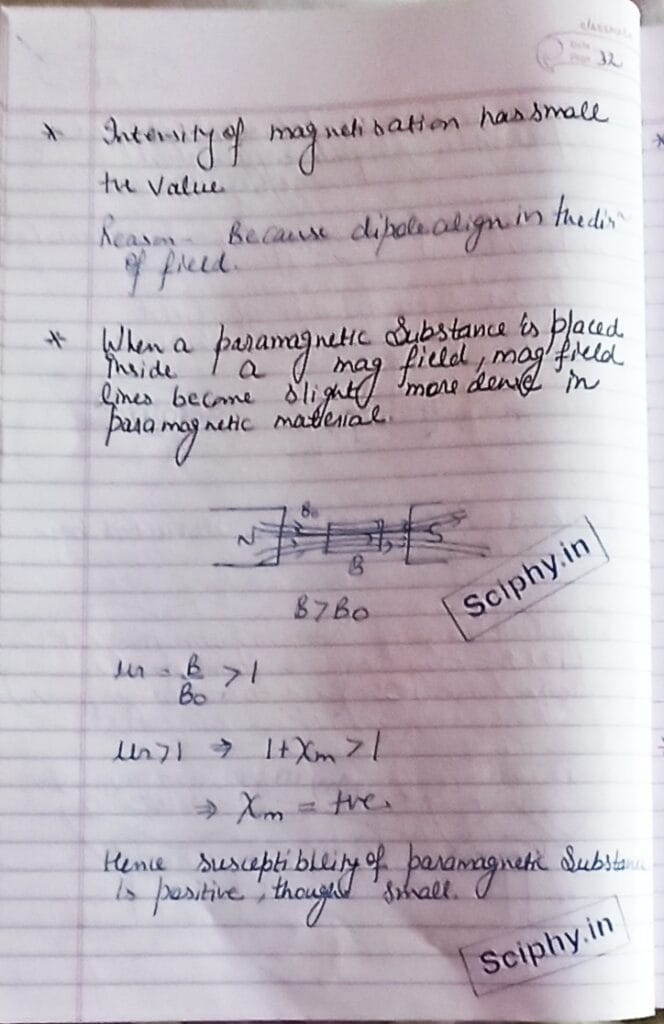 classmate
Date
Page 32
* Intensity of magnetisation has small
+ve value
Reason - Because dipole align in the dirn
of field.
* When a paramagnetic Substance is placed
inside a mag field, mag field
lines become slightly more dense in
paramagnetic material.
B0
N S
B
B>B0
Sciphy.in
μr = B/B0 > 1
μr>1 ⇒ 1+Xm >1
⇒ Xm = +ve.
Hence susceptibility of paramagnetic Substance
is positive, though small.
Sciphy.in